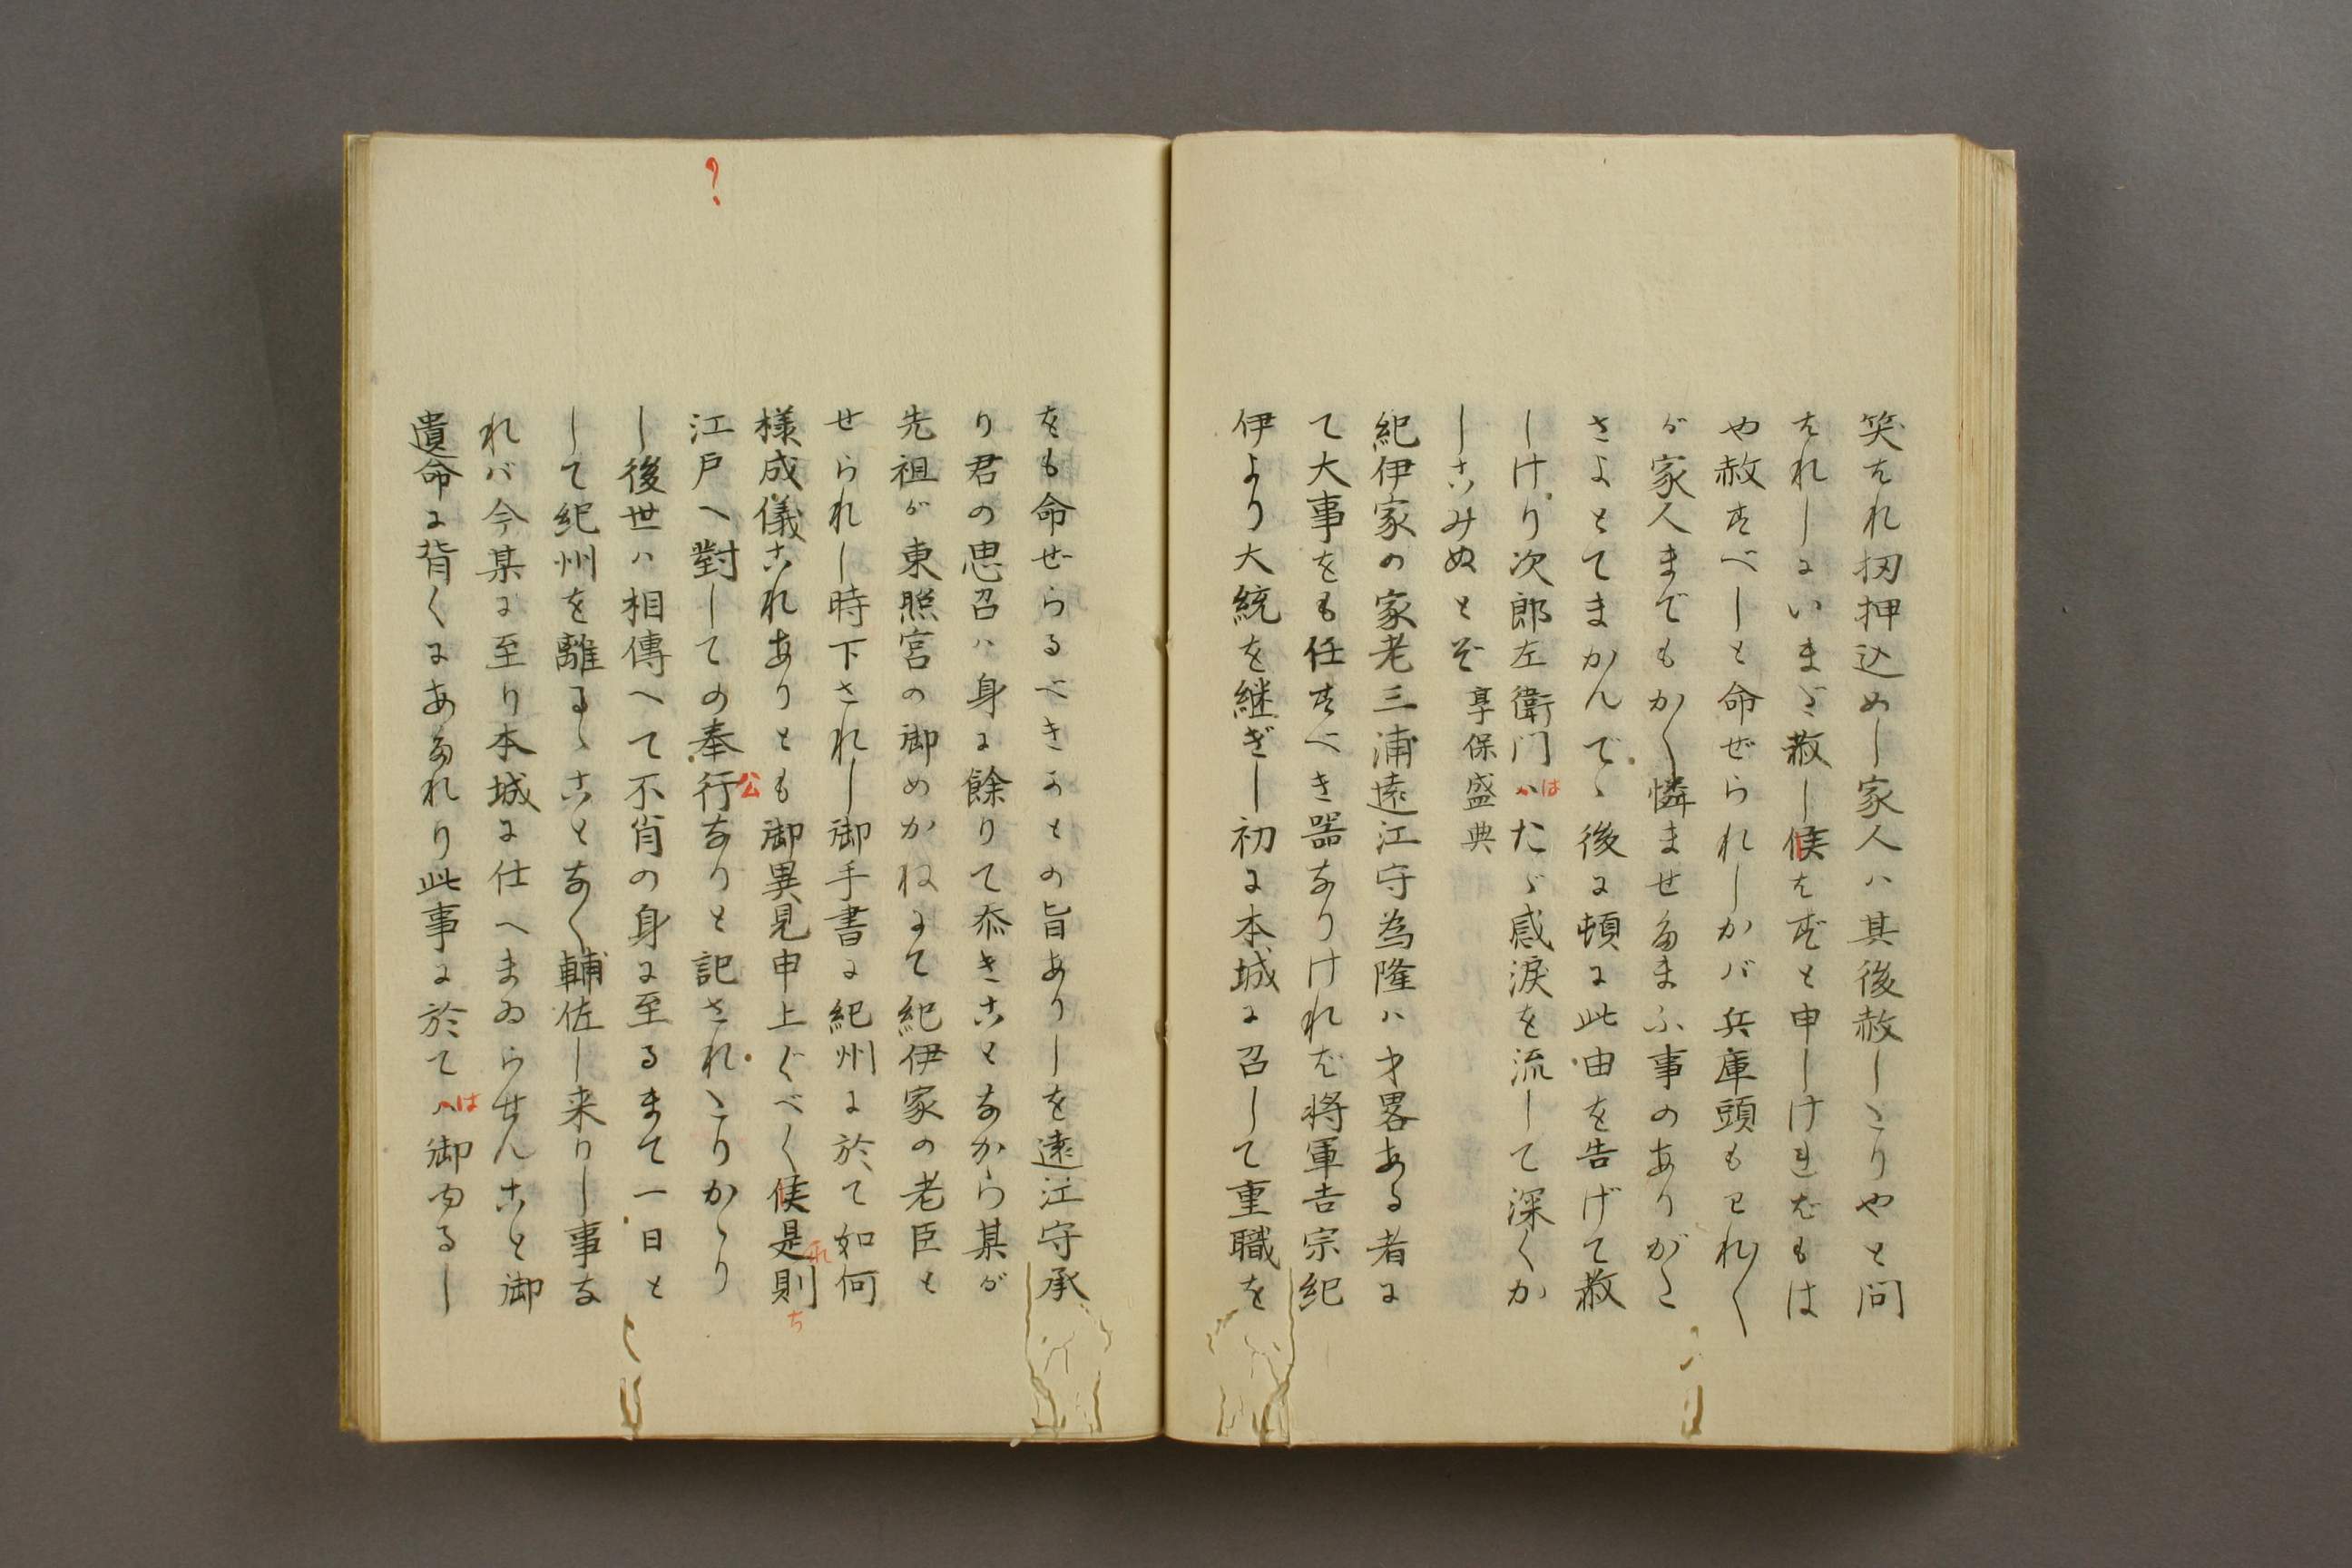 笑はれ押込めし家人ハ其後赦したりやと問
はれしにいまだ赦し候はずと申しければもは
や赦すべしと命ぜられしかバ兵庫頭もわれ〱
が家人までもかく憐ませ給ふ事のありがた
さよとてまかんでゝ後に頓に此由を告げて赦
しけり次郎左衛門ハはたゞ感涙を流して深くか
しこみぬとぞ享保盛典
紀伊家の家老三浦遠江守為隆ハ才畧ある者に
て大事をも任すべき器なりければ将軍吉宗紀
伊より大統を継ぎし初に本城に召して重職を
?
をも命ぜらるべきよとの旨ありしを遠江守承
り君の思召ハ身に餘りて忝きことなから某が
先祖が東照宮の御めかねにて紀伊家の老臣と
せられし時下されし御手書に紀州に於て如何
様成儀これありとも御異見申上ぐべく候是れ則ち
江戸へ對しての奉公行なりと記されたりかゝり
し後世ハ相傳へて不肖の身に至るまて一日と
して紀州を離るゝことなく輔佐し来りし事な
れバ今某に至り本城に仕へまゐらせんこと御
遺命に背くにあたれり此事に於てハは御ゆるし